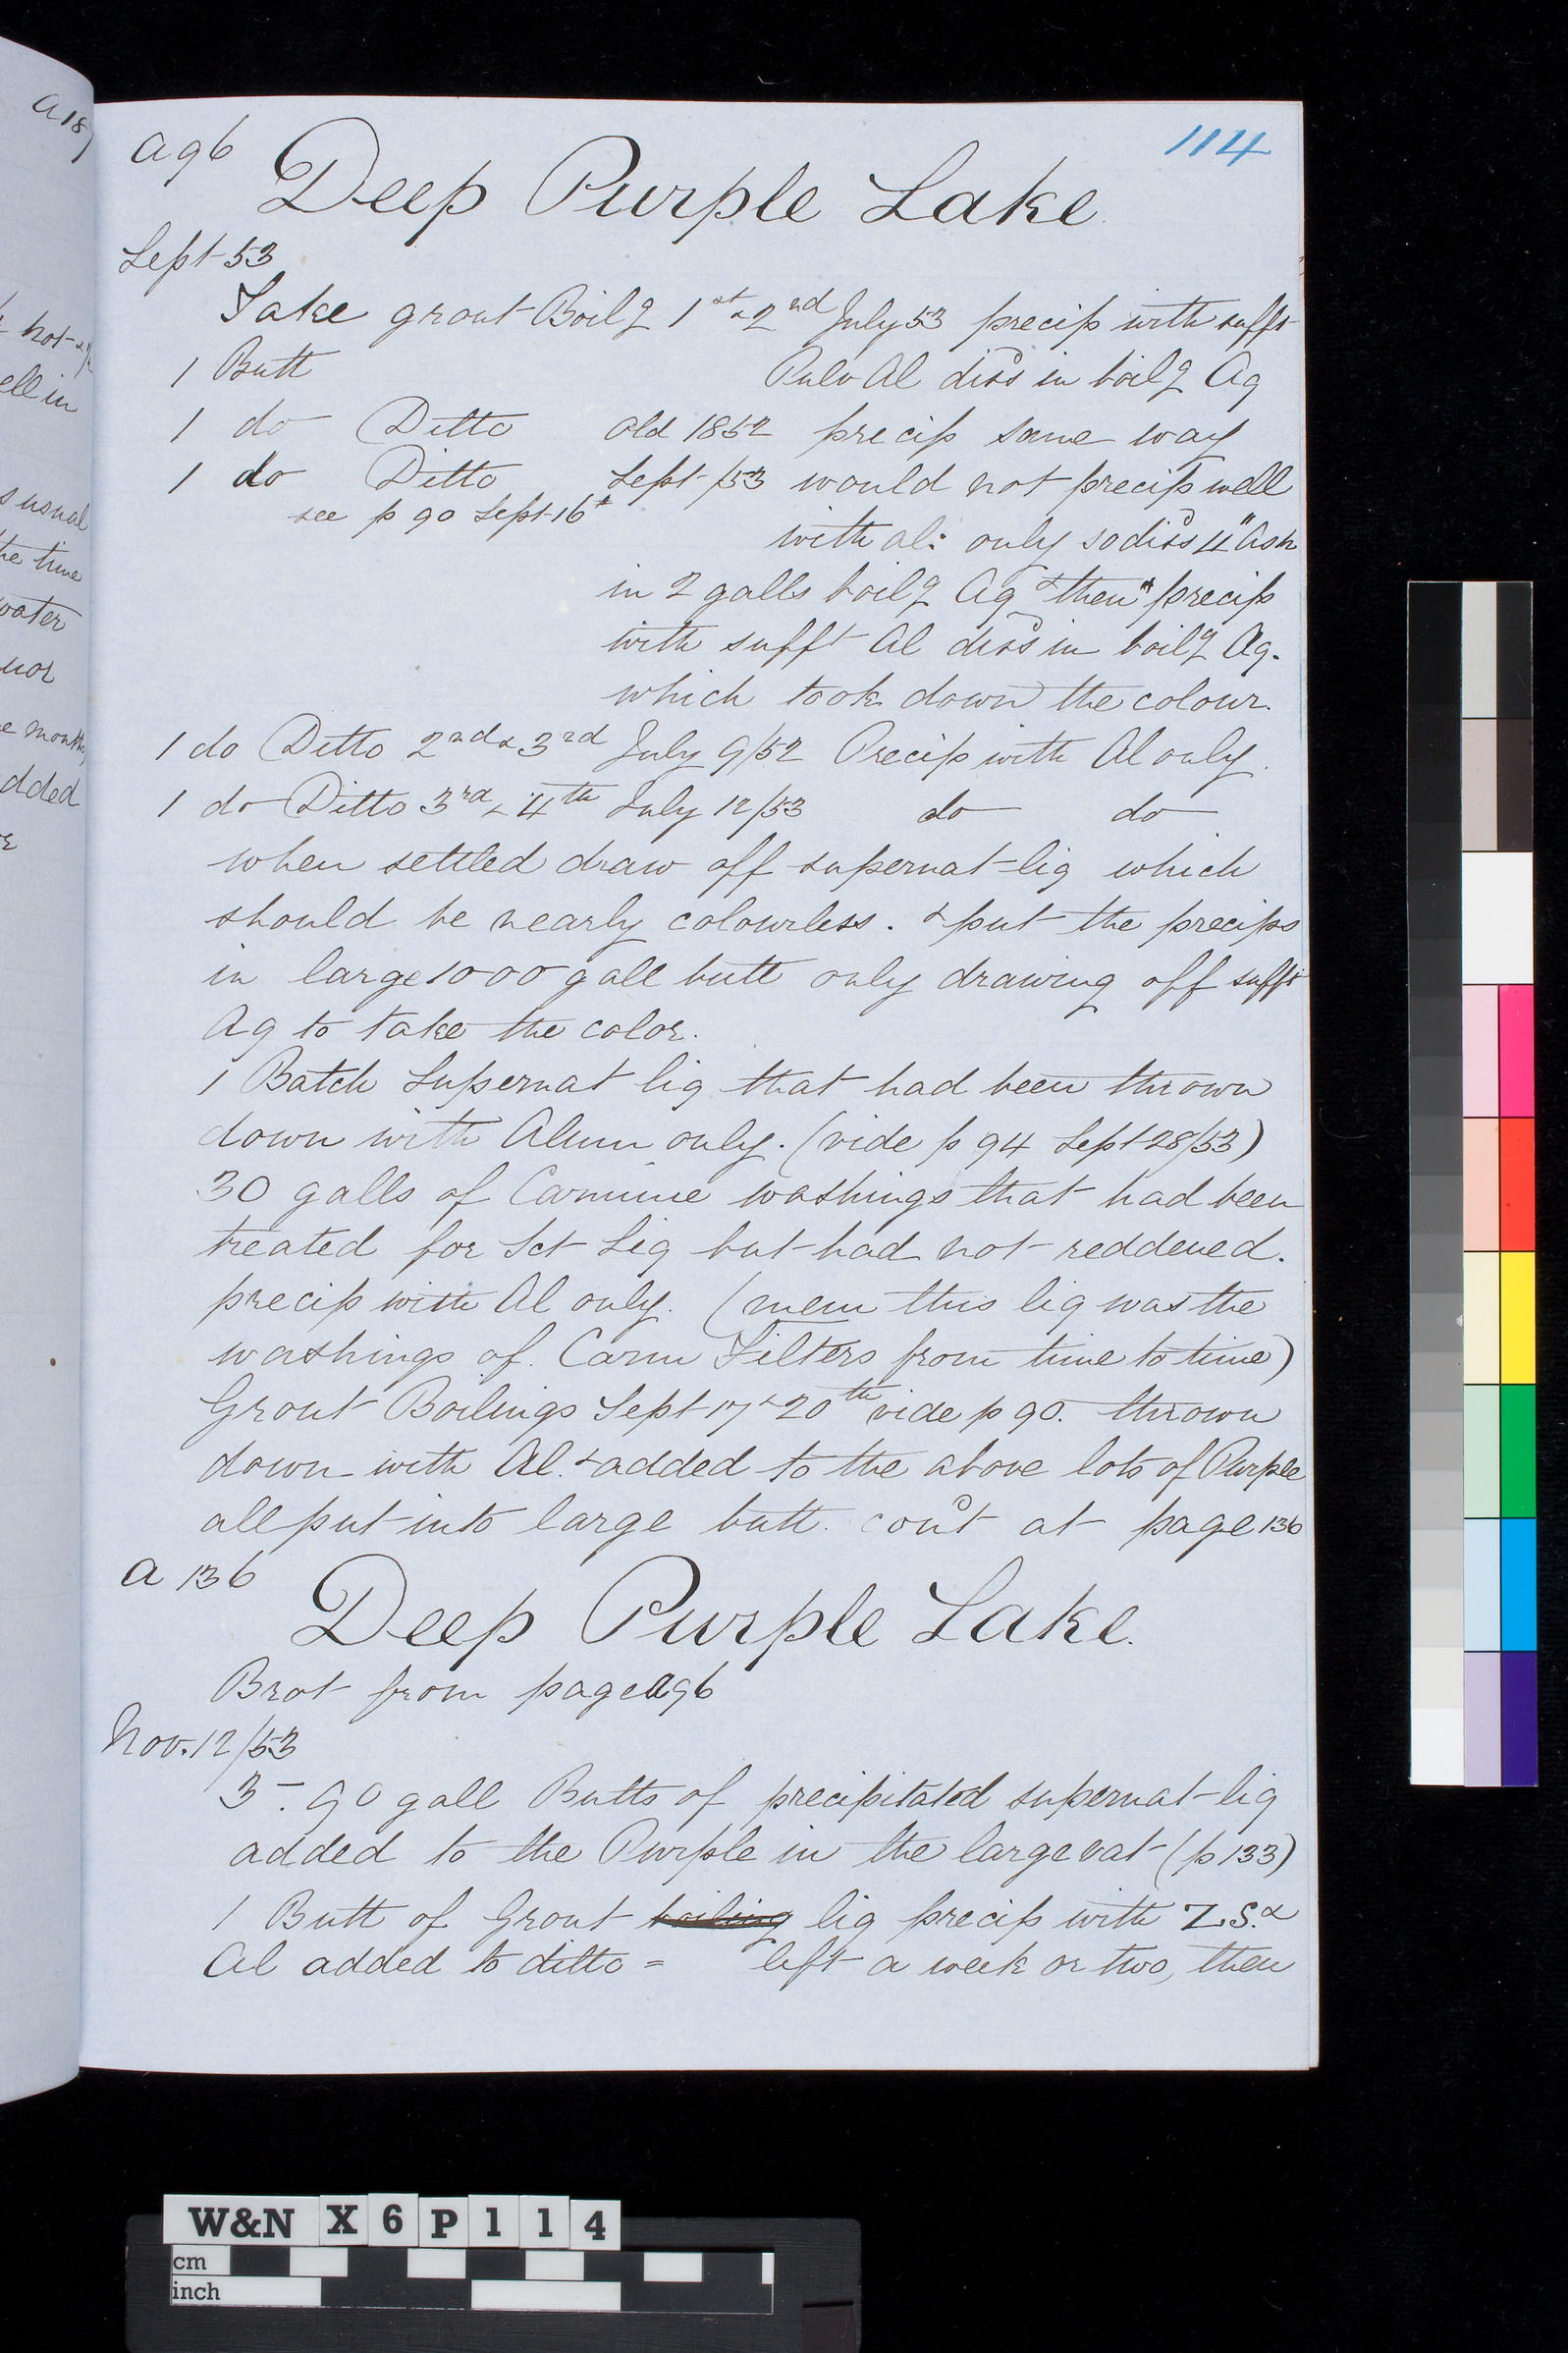 a18
hot
ell in
s usual
he time
water
uor
e months
dded
114
a 96
Deep Purple Lake
Sept 53
Take grout Boilg 1st & 2nd July 53 precip with sufft
1 Butt Pulv Al dissd in boilg Aq
1 do Ditto old 1852 precip same way
1 do Ditto Sept /53 would not precip well
see p 90 Sept 16th
with al: only so dissd 4" Ash
in 2 galls boilg Aq & "then" precip
with sufft Al dissd in boilg Aq.
which took down the colour.
1 do Ditto 2nd & 3rd July 9/52 Precip with Al only.
1 do Ditto 3rd & 4th July 12/53 do do
when settled draw off supernat liq which
should be nearly colourless. & put the precips
in large 1000 gall butt only drawing off sufft
Aq to take the color.
1 Batch Supernat liq that had been thrown
down with Alum only. (vide p 94 Sept 28/53)
30 galls of Carmine washings that had been
treated for Sct Liq but had not reddened.
precip with Al only. (mem this liq was the
washings of Carm Filters from time to time)
Grout Boilings Sept 17 & 20th vide p 90. thrown
down with Al. & added to the above lots of Purple
all put into large butt. cond't at page 136
a 136
Deep Purple Lake.
Brot from page a96
Nov. 12/53
3 - 90 gall Butts of precipitated supernat liq
added to the Purple in the large vat (p 133)
1 Butt of Grout boiling liq precip with Z.S. &
Al added to ditto = left a week or two, then
W&N X 6 P 1 1 4
cm
inch